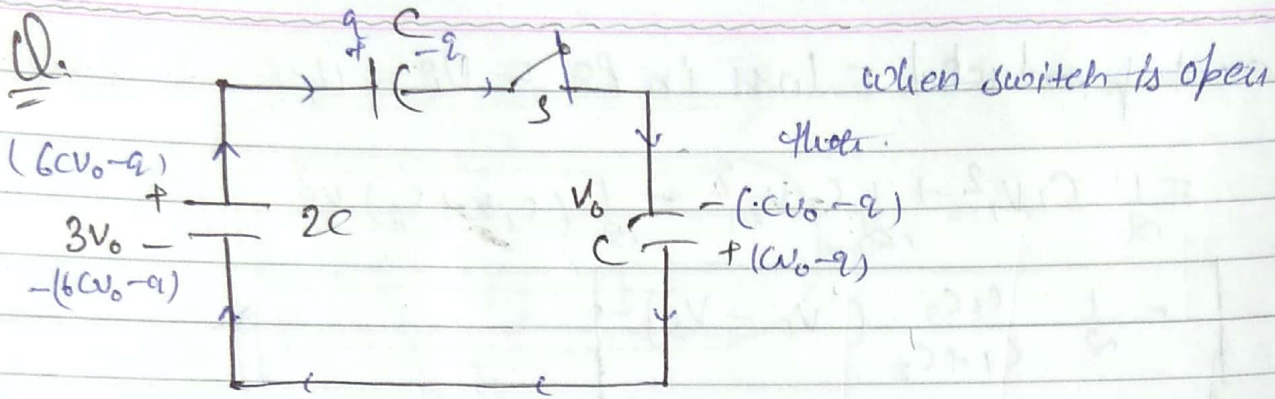 Q.
q C
+ -q
S
when switch is open
then.
(6CV₀-q)
+
3V₀ -
2C
-(6CV₀-q)
V₀
C
-(CV₀-q)
+(CV₀-q)